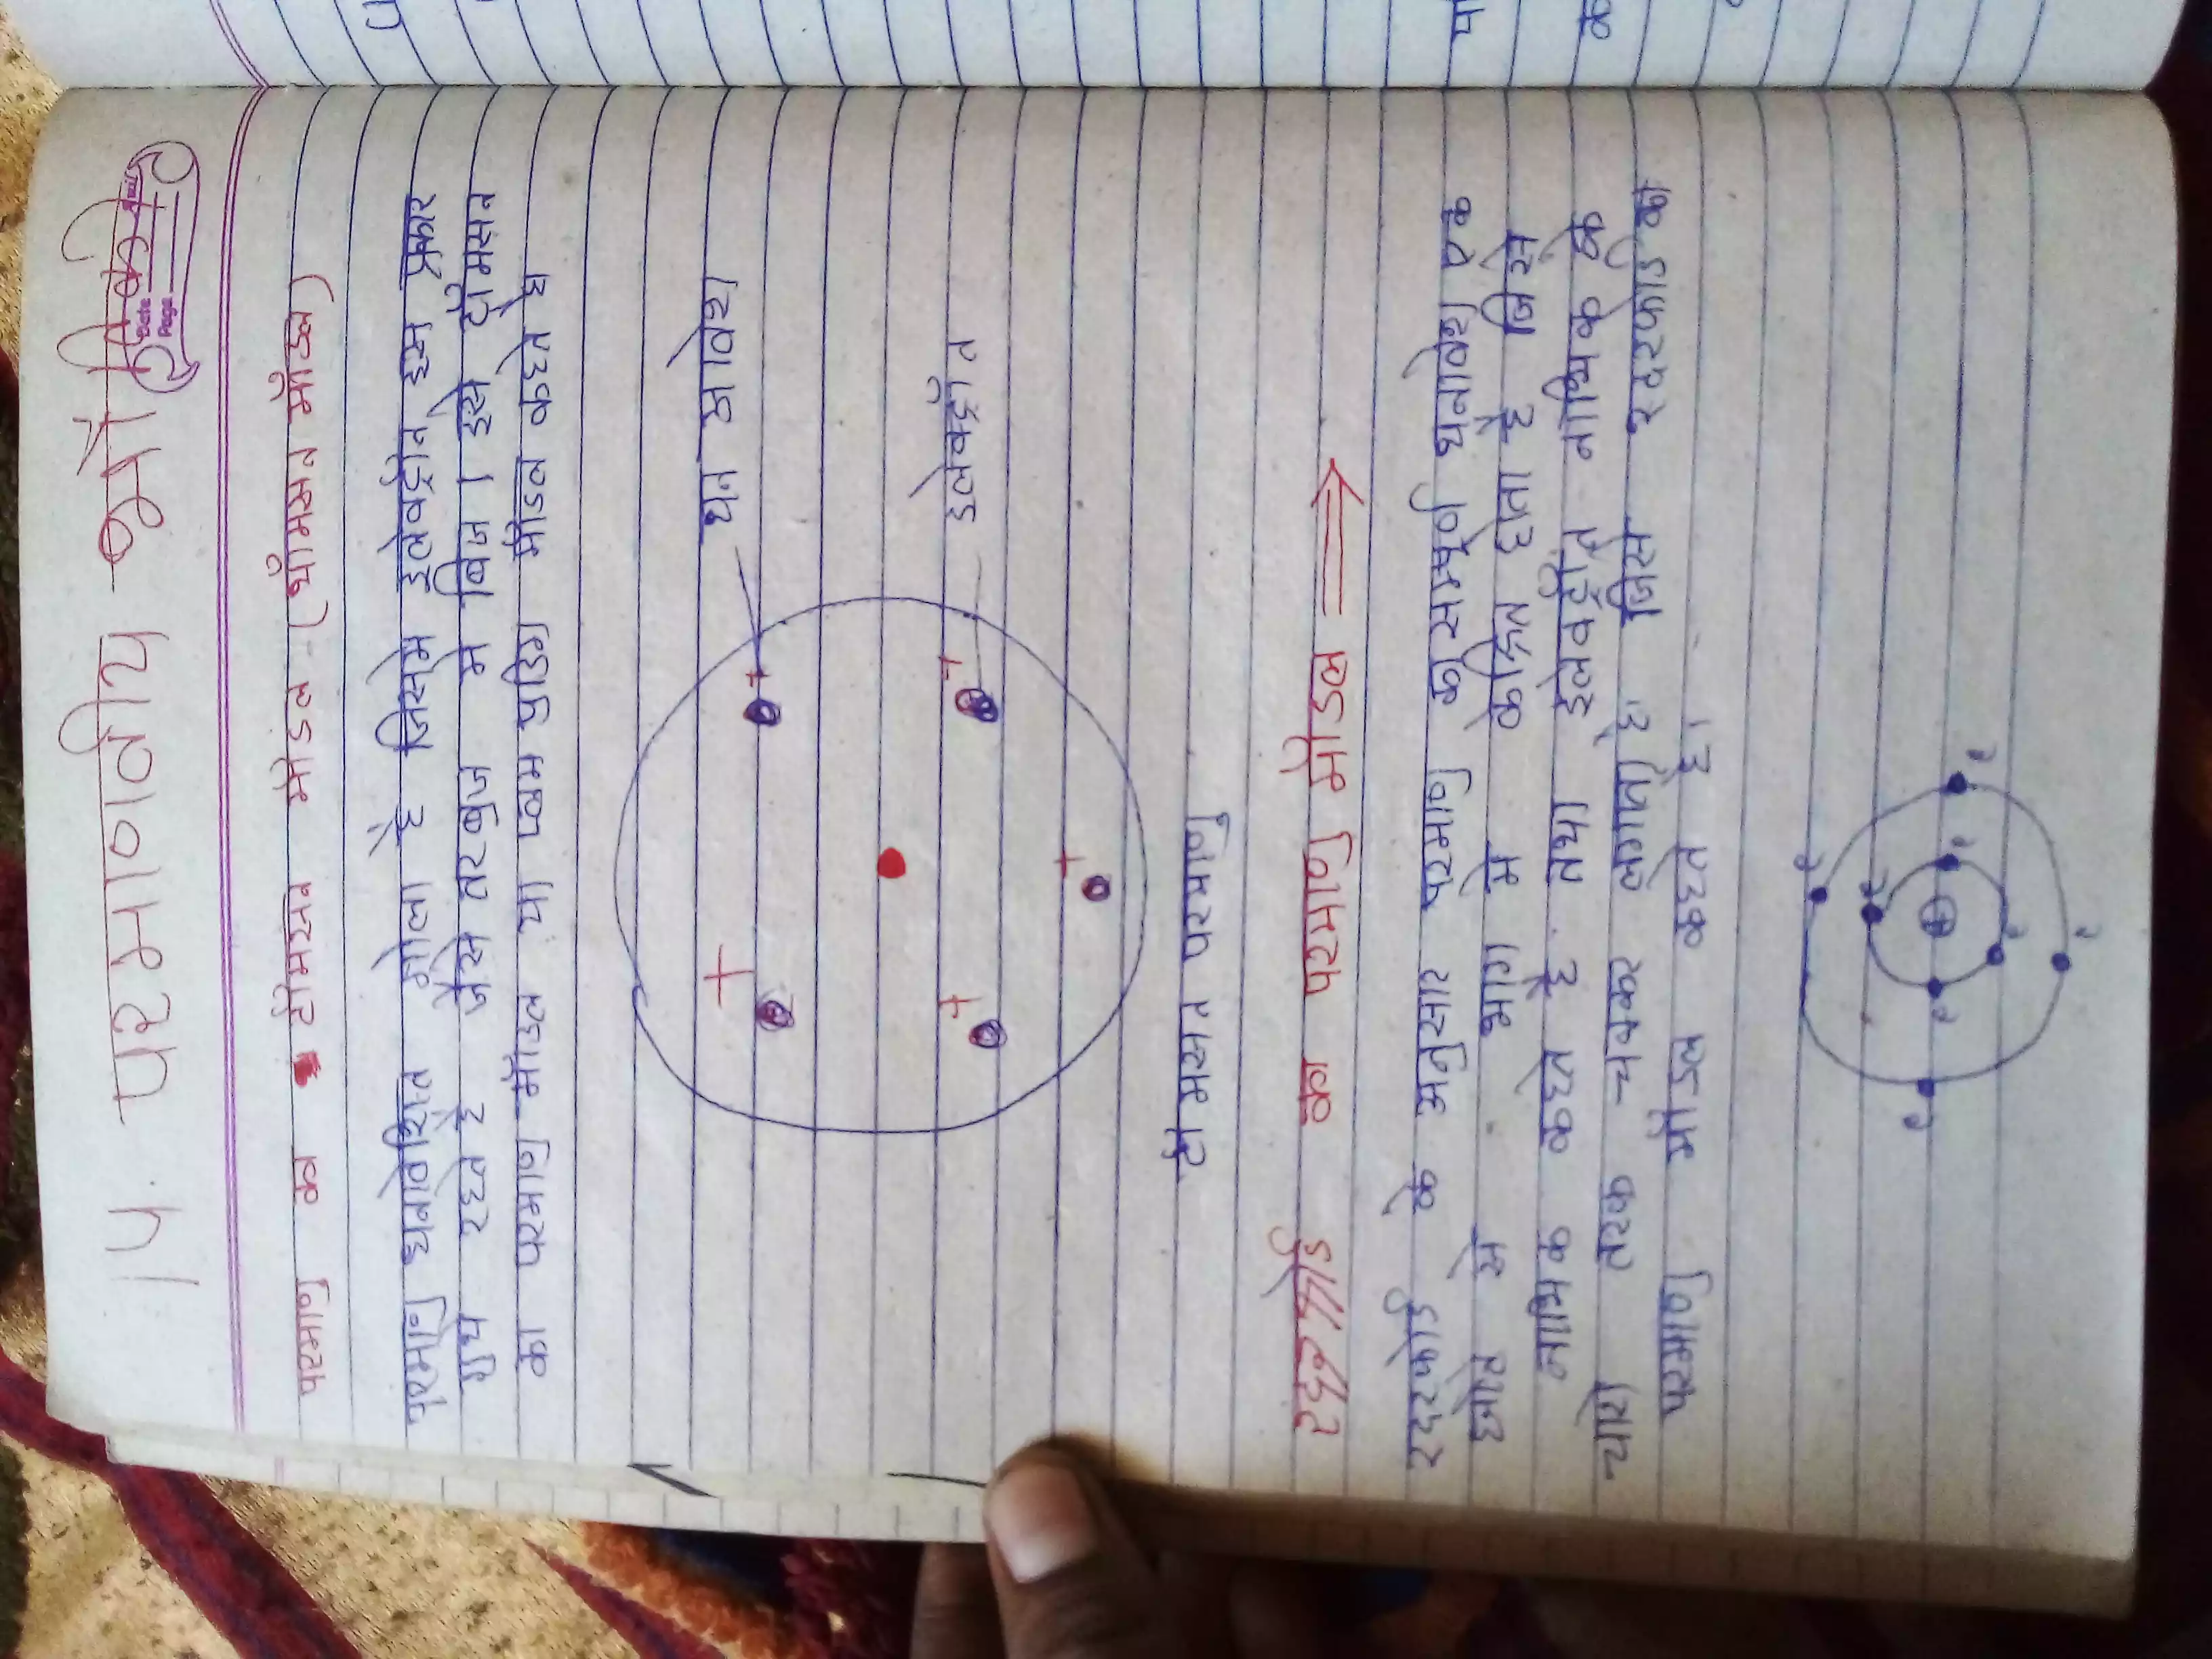 14. परमाणवीय भौतिकी
Date
Page
परमाणु का टोमसन मोडल (थॉमसन मॉडल)
परमाणु धनावेशित गोला है जिसमे इलेक्ट्रोन इस प्रकार
गुप रहते है जैसे तरबुज मे बिज । इसे टोमसन
का परमाणु मॉडल या प्लम पुडिंग मोडल कहते है
धन आवेश
इलेक्ट्रॉन
टोमसन परमाणु
का परमाणु मॉडल ⟹
रदरफोर्ड के अनुसार परमाणु का सम्पूर्ण धनावेश एक
भाग मे केंद्रित होता है जिसे
नाभिक कहते है तथा इलेक्ट्रॉन नाभिक के
चारो तरफ चक्कर लगाते है जिसे रदरफोर्ड का
परमाणु मॉडल कहते है।